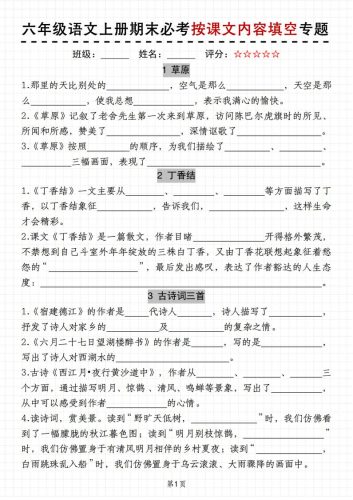 六年级语文上册期末必考按课文内容填空专题
班级：______ 姓名：______ 评分：☆☆☆☆☆
1 草原
1.那里的天比别处的__________，空气是那么________，天空是那
么________，使我总想__________，表示我满心的愉快。
2.《草原》记叙了老舍先生第一次来到草原，访问陈巴尔虎旗时的所见、
所闻和所感，赞美了__________，深情讴歌了______________。
3.《草原》按照________的顺序，为我们描绘了________、________、
________三幅画面，表现了______________________。
2 丁香结
1.《丁香结》一文主要从________、________、________等方面描写了丁
香，以丁香结象征__________，告诉我们，______________，这样生命
才会精彩。
2.课文《丁香结》是一篇散文，作者目睹____________开得格外繁茂，
不禁想到自己斗室外年年绽放的三株白丁香，又由丁香花联想起象征着愁
怨的“______________”，最后发出感叹，表达了作者豁达的人生态
度：____________________________________。
3 古诗词三首
1.《宿建德江》的作者是____代诗人______，诗人描写了__________，
抒发了诗人对家乡的________及________的复杂之情。
2.《六月二十七日望湖楼醉书》的作者是______，写的是__________，
写出了诗人对西湖水的__________________。
3.古诗《西江月•夜行黄沙道中》，作者从______、______、______三
个方面，通过描写明月、惊鹊、清风、鸣蝉等景象，写出了________，
从中可以感受到作者____________的心情。
4.读诗词，赏美景。读到“野旷天低树，____________”时，我们仿佛看
到了一幅朦胧的秋江暮色图；读到“明月别枝惊鹊，____________”
时，我们仿佛置身于有清风明月相伴的乡村夏夜；读到“____________，
白雨跳珠乱入船”时，我们仿佛置身于乌云滚滚、大雨骤降的画面中。
第1页